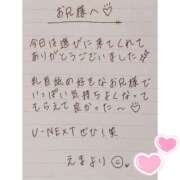 お兄様へ♡
今日は遊びに来てくれて
ありがとうございました
乳首舐の好きなお兄様で
いっぱい気持ちよくなって
もらえて良かった〜♡
U-NEXTぜひ!笑
えまより